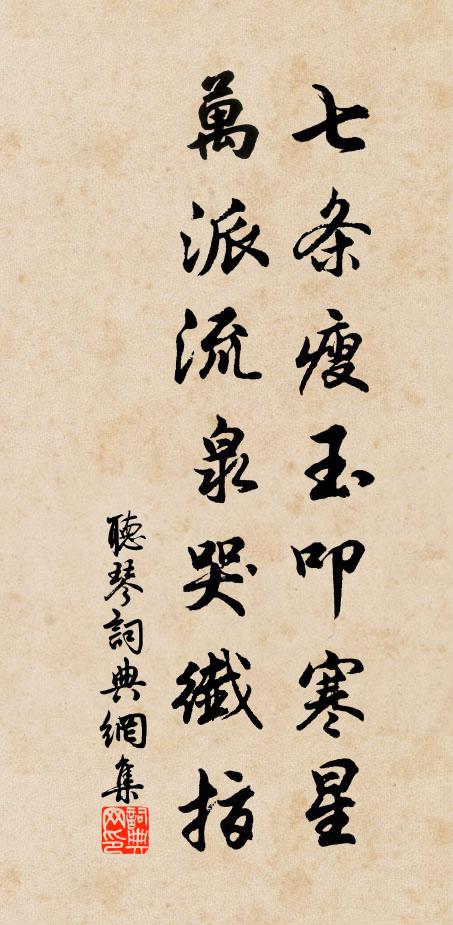 七条瘦玉叩寒星
萬派流泉哭纖指
聽琴詞典網集
詞典网印